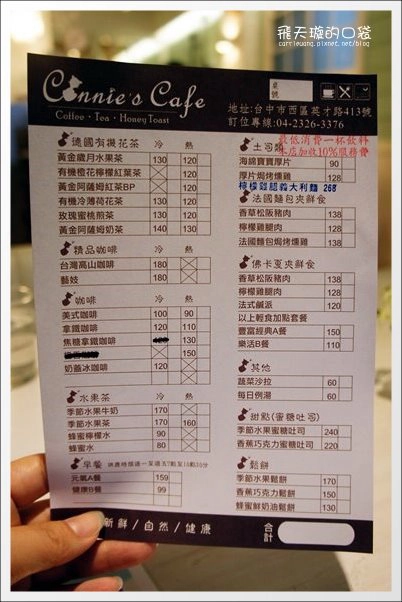 飛天璇的口袋
carriewang.pixnet.net/blog
Connie's Cafe
Coffee・Tea・Honey Toast
桌號
地址:台中市西區英才路413號
訂位專線:04-2326-3376
最低消費一杯飲料
本店加收10%服務費
德國有機花茶 冷 熱
黃金歲月水果茶 130 120
有機橙花檸檬紅葉茶 120
黃金阿薩姆紅茶BP 120
有機冷薄荷花茶 130 120
玫瑰蜜桃煎茶 130 120
黃金阿薩姆奶茶 140 130
精品咖啡 冷 熱
台灣高山咖啡 180
藝妓 180
咖啡 冷 熱
美式咖啡 100 90
拿鐵咖啡 120 110
焦糖拿鐵咖啡 130
150
奶蓋冰咖啡 120
水果茶 冷 熱
季節水果牛奶 170
季節水果茶 170 160
蜂蜜檸檬水 90
蜂蜜水 80
早餐
元氣A餐 159
健康B餐 99
土司類
海綿寶寶厚片 90
厚片焗烤燻雞 128
檸檬雞腿義大利麵 268
法國麵包夾鮮食
香草松阪豬肉 138
檸檬雞腿肉 138
法國麵包焗烤燻雞 138
佛卡夏夾鮮食
香草松阪豬肉 138
檸檬雞腿肉 138
法式鹹派 120
以上輕食加點套餐
豐富經典A餐 150
樂活B餐 110
其他
蔬菜沙拉 60
每日例湯 60
甜點(蜜糖吐司)
季節水果蜜糖吐司 240
香蕉巧克力蜜糖吐司 220
鬆餅
季節水果鬆餅 170
香蕉巧克力鬆餅 150
蜂蜜鮮奶油鬆餅 130
新鮮/自然/健康
合計